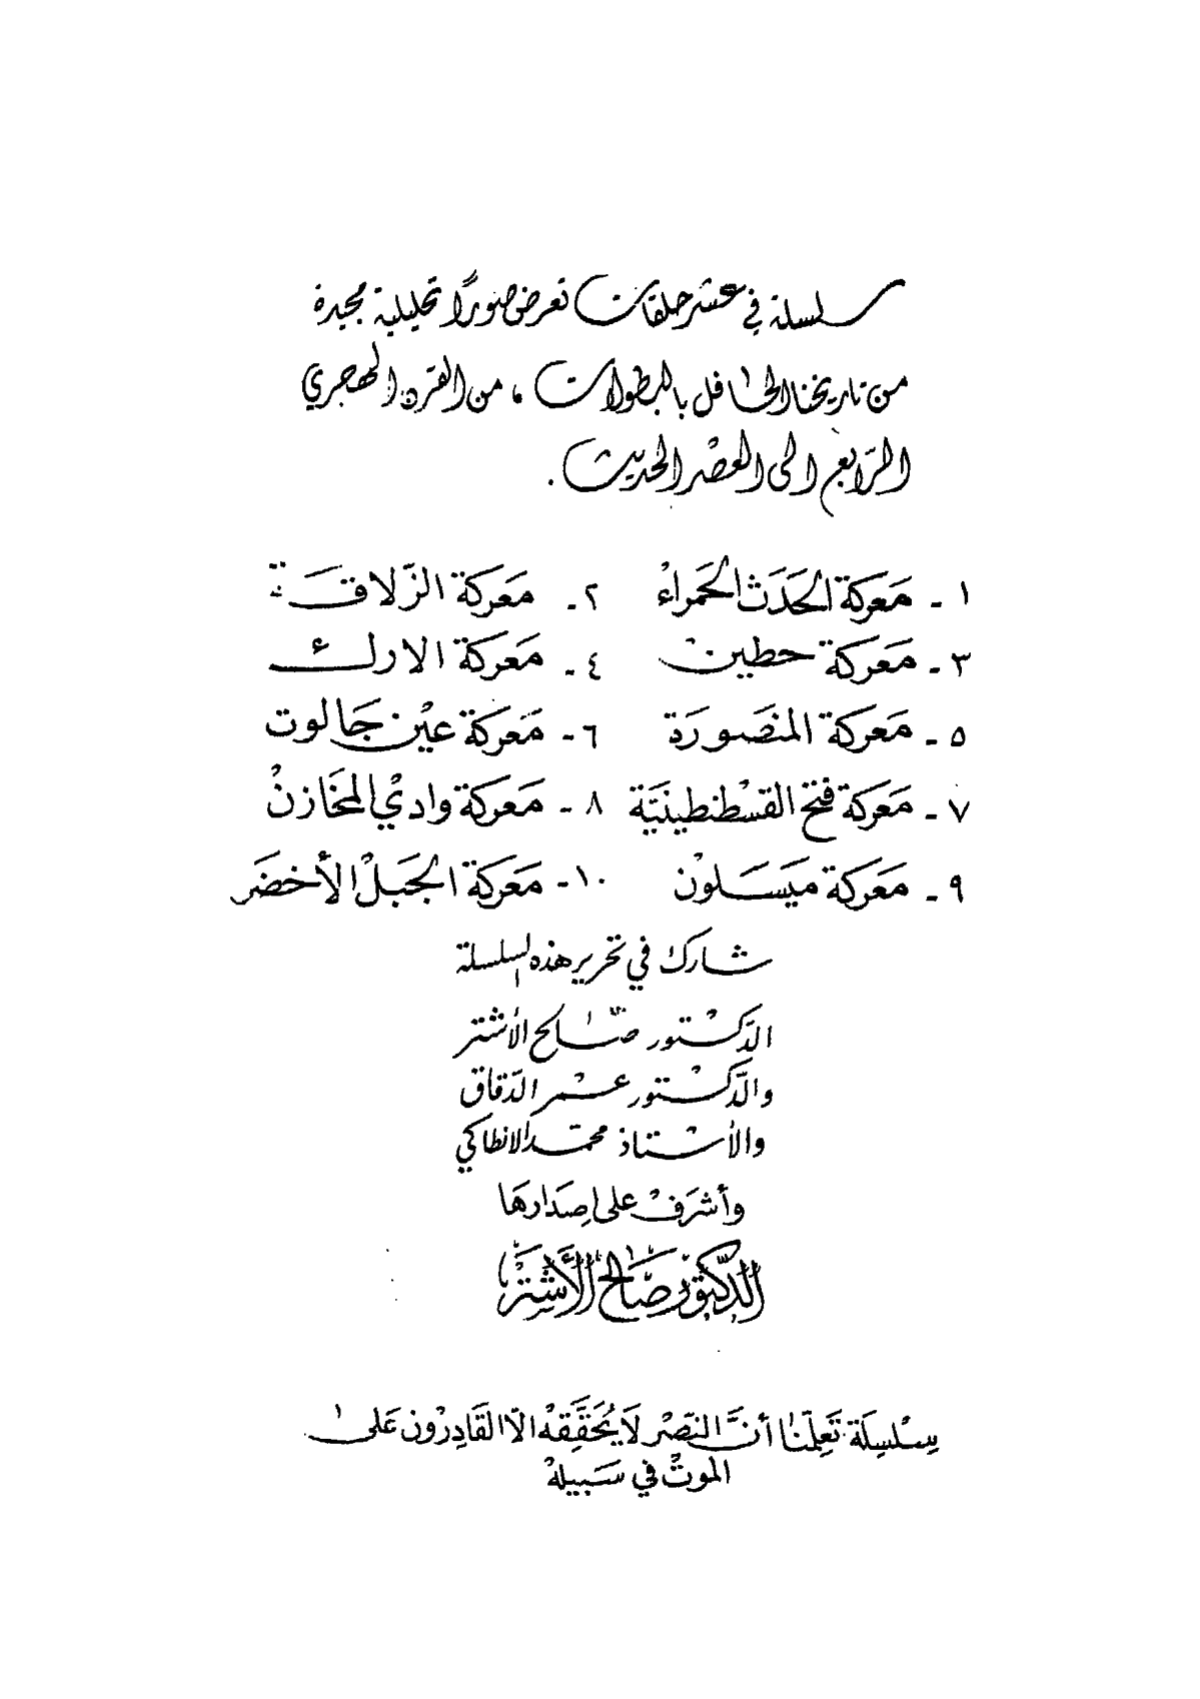 سلسلة في عشر حلقات تعرض صورًا تحليلية مجيدة
من تاريخنا الحافل بالبطولات ، من القرن الهجري
الرَّابع الى العصر الحديث .
١ - مَعَركة الحَدَث الحَمراء ٢ - مَعَركة الزّلاقَة
٣ - مَعَركة حطين ٤ - مَعَركة الارك
٥ - مَعَركة المنصَورَة ٦ - مَعَركة عيْن جَالوت
٧ - مَعَركة فتح القسْطنطينيَّة ٨ - مَعَركة وادي المخَازن
٩ - مَعَركة ميَسَلوْن ١٠ - مَعَركة الجَبَل الأخضَر
شارك في تحرير هذه السلسلة
الدَّكتور صَالح الأشتر
والدَّكتور عمر الدّقاق
والأستاذ محمّد الانطاكي
وأشرَف على إصدَارهَا
الدّكتور صَالح الأَشتَر
سِلْسِلَة تَعَلِّمنَا أنَّ النصْر لَا يُحَقَّقِهْ الّا القَادِرْون عَلىٰ
الموتْ في سَبيلهْ